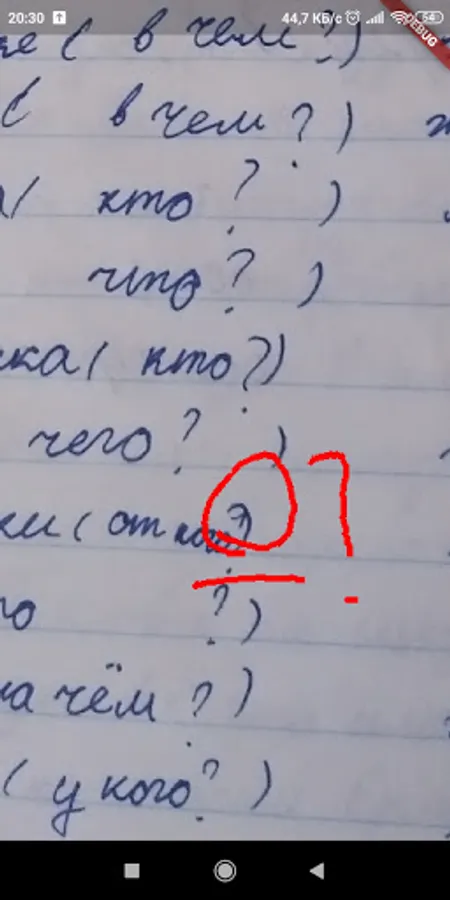 20:30 44,7 КБ/с 54
DEBUG
же ( в чем?)
( в чем?)
а( кто?)
что?)
ка( кто?)
чего?)
ки( от кого?)
го ?)
на чём?)
( у кого?)
?